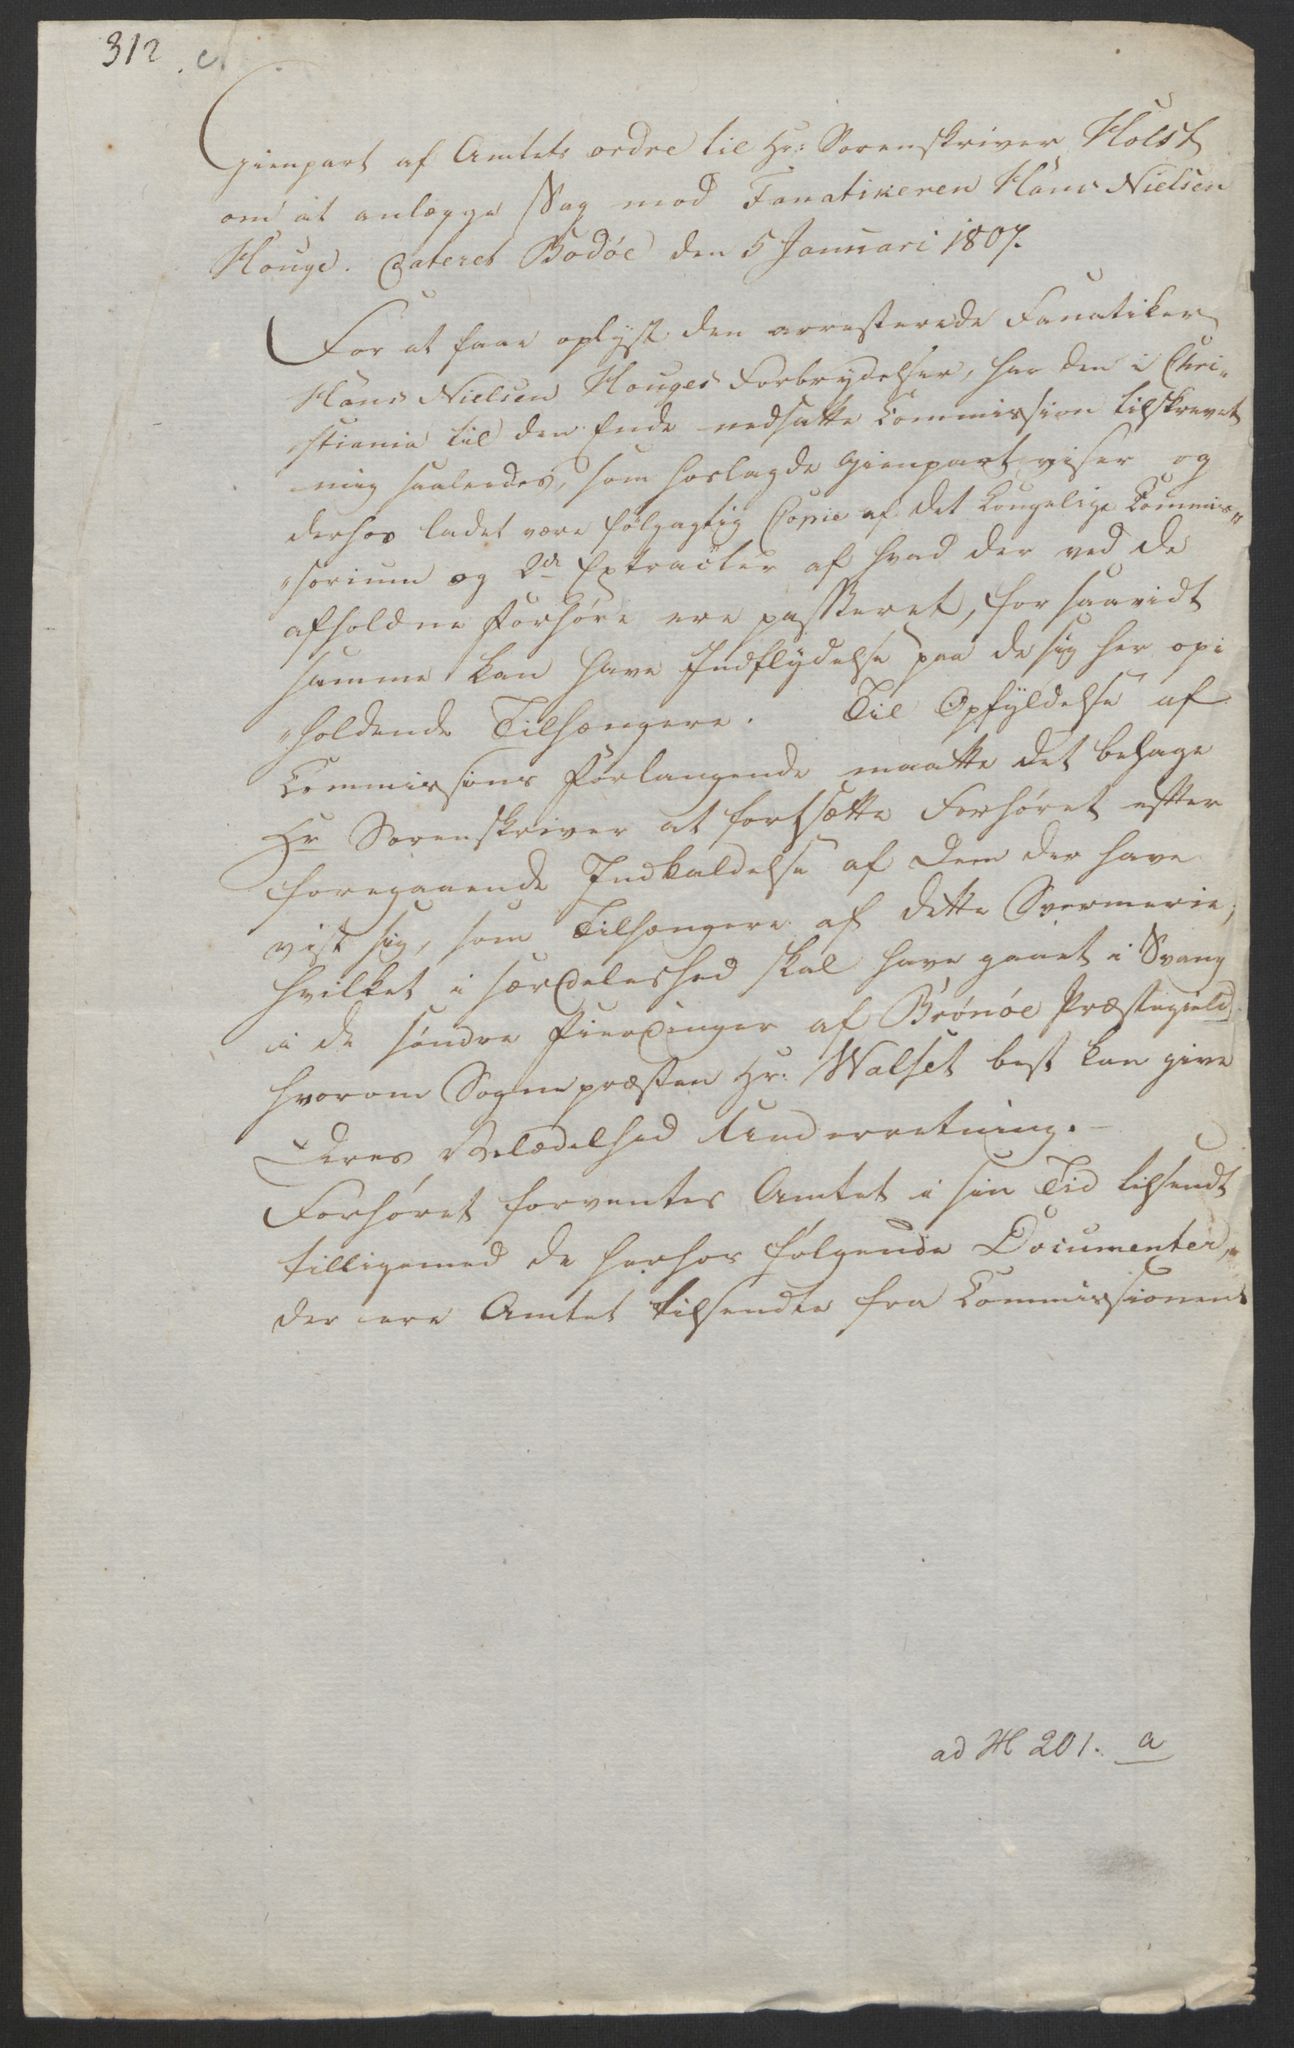 312 c.
Gienpart af Amtets ordre til Hr: Sorenskriver Holst
om at anlægge Sag mod Fanatikeren Hans Nielsen
Houge. Dateret Bodøe den 5 Januari 1807.
For at faae oplyst den arresterede Fanatiker
Hans Nielsen Houges Forbrydelser, har den i Chri„
stiania til den Ende nedsatte Commission tilskrevet
mig saaledes, som hoslagde Gienpart viser og
derhos ladet være følgagtig Copie af det Kongelige Commis„
„sorium og 2de Extracter af hvad der ved de
afholdne Forhøre ere passeret, for saavidt
samme kan have Indflydelse paa de sig her op¡
„holdende Tilhængere. Til Opfyldelse af
Commissions Forlangende maatte det behage
Hr Sorenskriver at fortsætte Forhøret efter
foregaaende Indkaldelse af dem der have
vist sig, som Tilhængere af dette Svermerie,
hvilket i særdeleshed skal have gaaet i Svang
i de søndre Fierdinger af Brønøe Præstegield
hvorom Sognepræsten Hr: Walset best kan give
Deres Velædelhed Underretning.
Forhøret forventes Amtet i sin Tid tilsendt
tilligemed de herhos følgende Documenter,
der ere Amtet tilsendte fra Commissionen
ad H 201. a